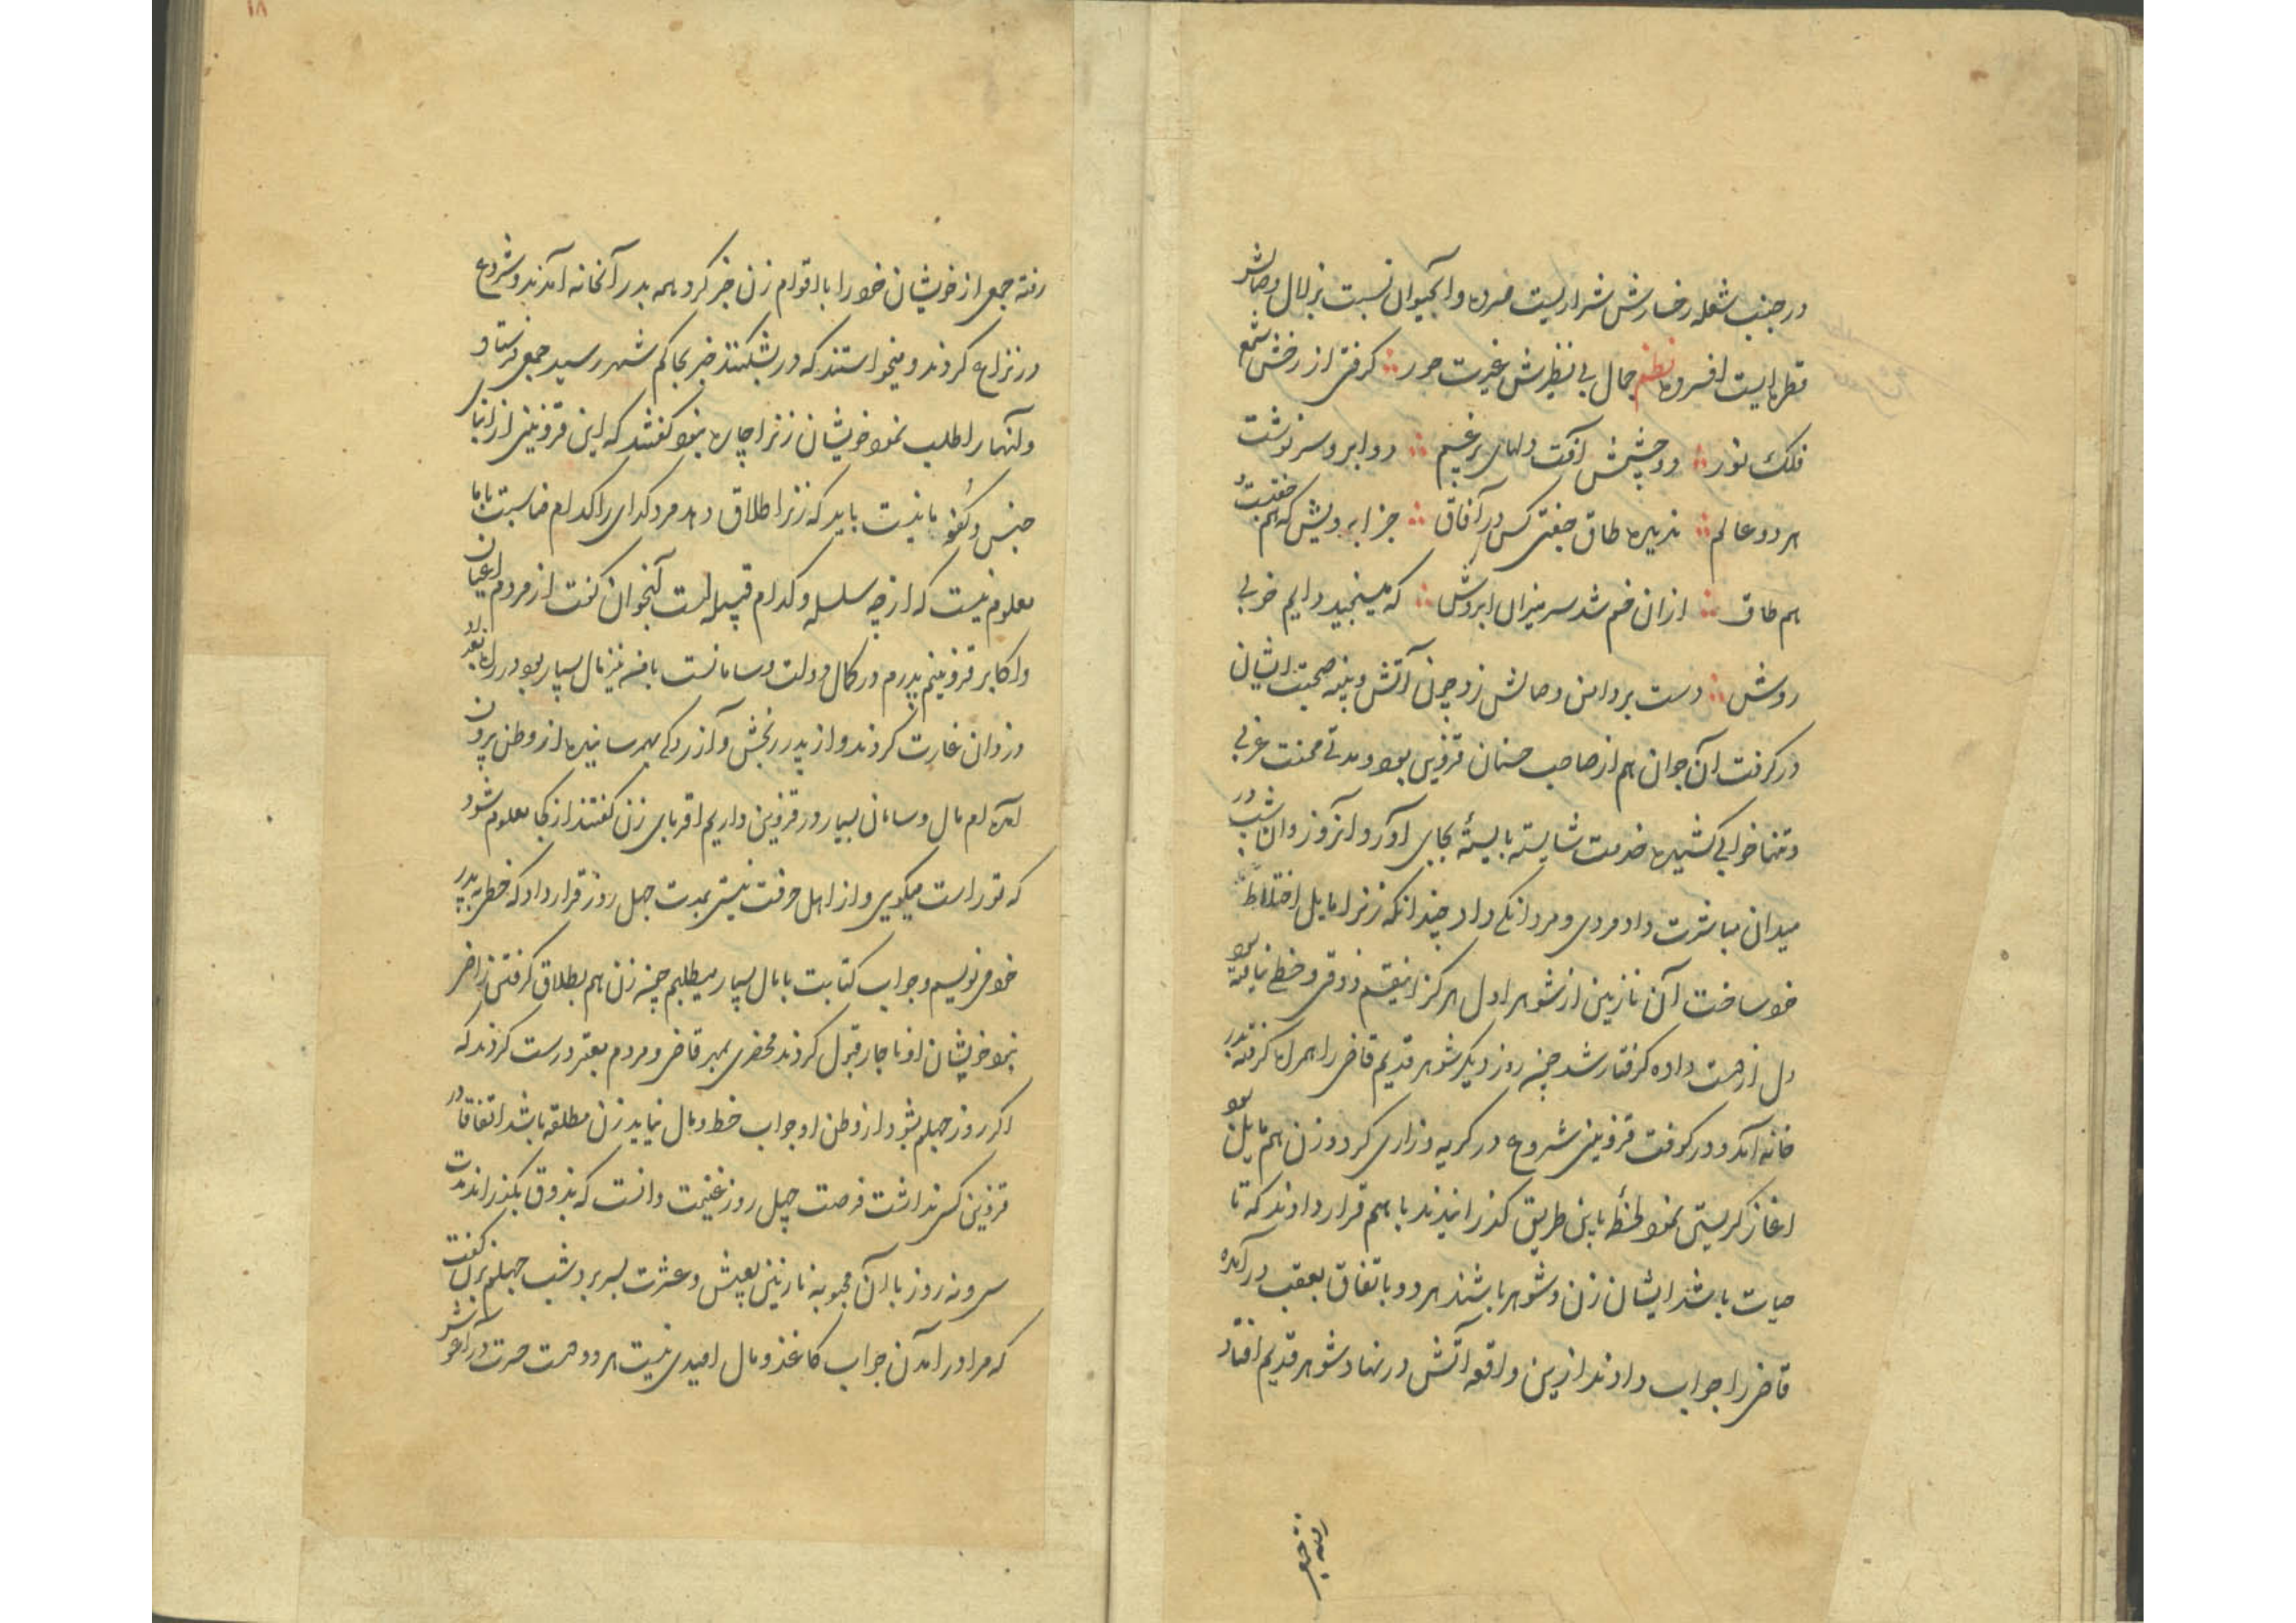 در جنب شعله رخسارش شراریست مرده و آبحیوان نسبت بزلال وصالش
قطره‌ایست افسرده نظم جمال بی نظیرش غیرت حور گرفتی از رخش شمع
فلک نور دو چشمش آفت دلهای پرغم دو ابرو سرنوشت
هر دو عالم ندیده طاق جفتی کس در آفاق جز ابرویش که هم جفتست و
هم طاق ازان خم شد سر میزان ابروش که میسنجید دایم خوبی
روش دست بر دامن وصالش زد چون آتش و پنبه صحبت ایشان
درگرفت آن جوان هم از صاحب حسنان قزوین بود و مدتی محنت غربی
و تنها خوابی کشیده خدمت شایسته بایسته بجای آورد آنروز و آن شب در
میدان مباشرت داد مردی و مردانگی داد چندانکه زنرا مایل اختلاط
خود ساخت آن نازنین از شوهر اول هرگز اینقسم ذوقی و حظی نیافته بود
دل از دست داده گرفتار شد چنه روز دیگر شوهر قدیم قاضی را همراه گرفته بدر
خانه آمد و در کوفت قزوینی شروع در گریه و زاری کرد و زن هم مایل بود
اغاز گریستن نمود لحظه باین طریق گذرانیدند با هم قرار دادند که تا
حیات باشد ایشان زن و شوهر باشند هر دو باتفاق بعقب در آمده
قاضی را جواب دادند ازین واقعه آتش در نهاد شوهر قدیم افتاد
رفته جمعی
۱۸
رفته جمعی از خویشان خود را با اقوام زن خبر کرد همه بدر آنخانه آمدند و شروع
در نزاع کردند و میخواستند که در بشکنند خبر بحاکم شهر رسید جمعی فرستاد
و آنهارا طلب نمود خویشان زنرا چاره نبود گفتند که این قزوینی از ابنای
جنس و کفو ما نیست باید که زنرا طلاق دهد مرد گدای را کدام مناسبت با ما
معلوم نیست که از چه سلسله و کدام قبیله است آنجوان گفت از مردم اعیان
و اکابر قزوینم پدرم در کمال دولت و سامانست با من نیز مال بسیار بود در راه بغداد
دزدان غارت کردند و از پدر رنجش و آزردگی بهمرسانیده از وطن برون
آمده ام مال و سامان بسیار در قزوین داریم اقربای زن گفتند از کجا معلوم شود
که تو راست میگویی و از اهل حرفت نیستی بمدت چهل روز قرار داد که خطی به پدر
خود می نویسم و جواب کتابت با مال بسیار میطلبم چنه زن هم بطلاق گرفتن راضی
نبود خویشان او ناچار قبول کردند محضری بمهر قاضی و مردم معتبر درست کردند که
اگر روز چهلم شود از وطن او جواب خط و مال نیاید زن مطلقه باشد اتفاقا در
قزوین کس نداشت فرصت چهل روز غنیمت دانست که بذوق بگذراند مدت
سی و نه روز با آن محبوبه نازنین بعیش و عشرت بسر برد شب چهلم بزن گفت
که مرا در آمدن جواب کاغذ و مال امیدی نیست هر دو دست حسرت در آغوش